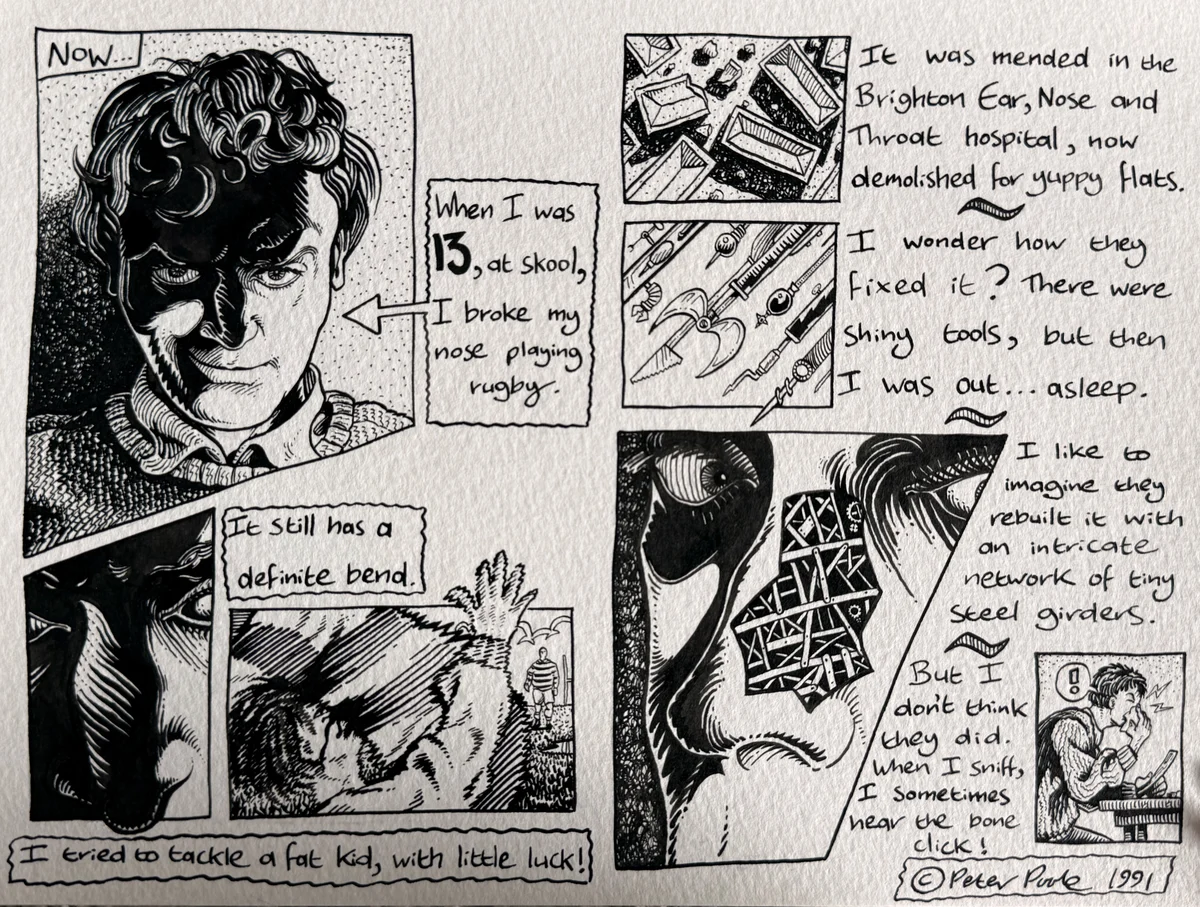 Now...
When I was
13, at skool,
I broke my
nose playing
rugby.
It still has a
definite bend.
I tried to tackle a fat kid, with little luck!
It was mended in the
Brighton Ear, Nose and
Throat hospital, now
demolished for yuppy flats.
I wonder how they
fixed it? There were
shiny tools, but then
I was out... asleep.
I like to
imagine they
rebuilt it with
an intricate
network of tiny
steel girders.
But I
don't think
they did.
When I sniff,
I sometimes
hear the bone
click!
!
© Peter Poole 1991